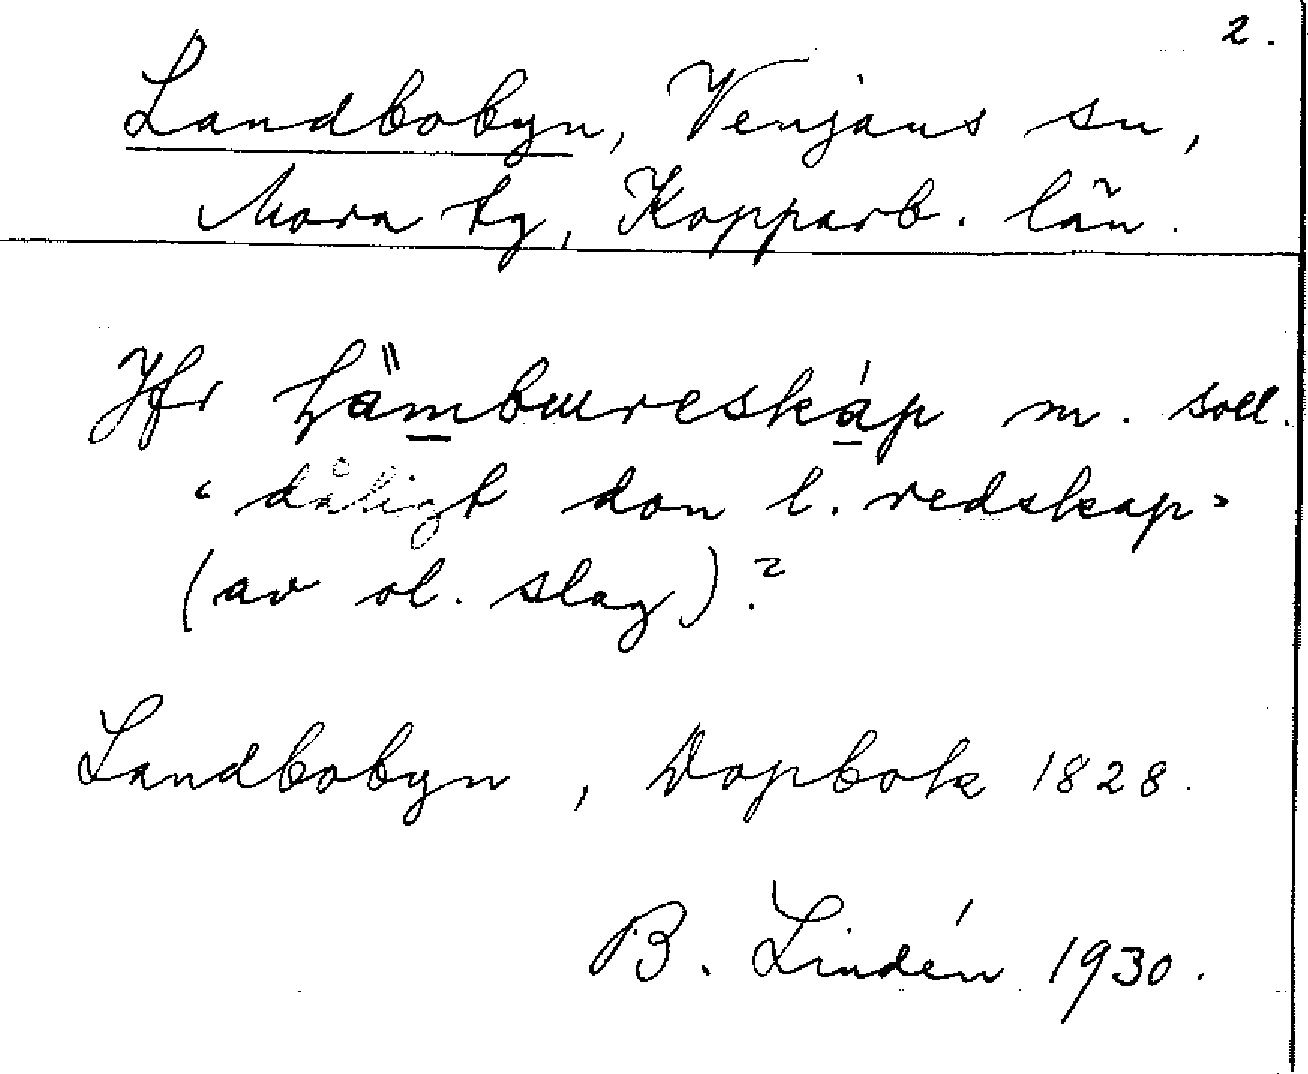 2.
Landbobyn, Venjans sn,
Mora tg, Kopparb. län.
Jfr m. soll.
"dåligt don l. redskap"
(av ol. slag)?
Landbobyn, Dopbok 1828.
B. Lindén 1930.